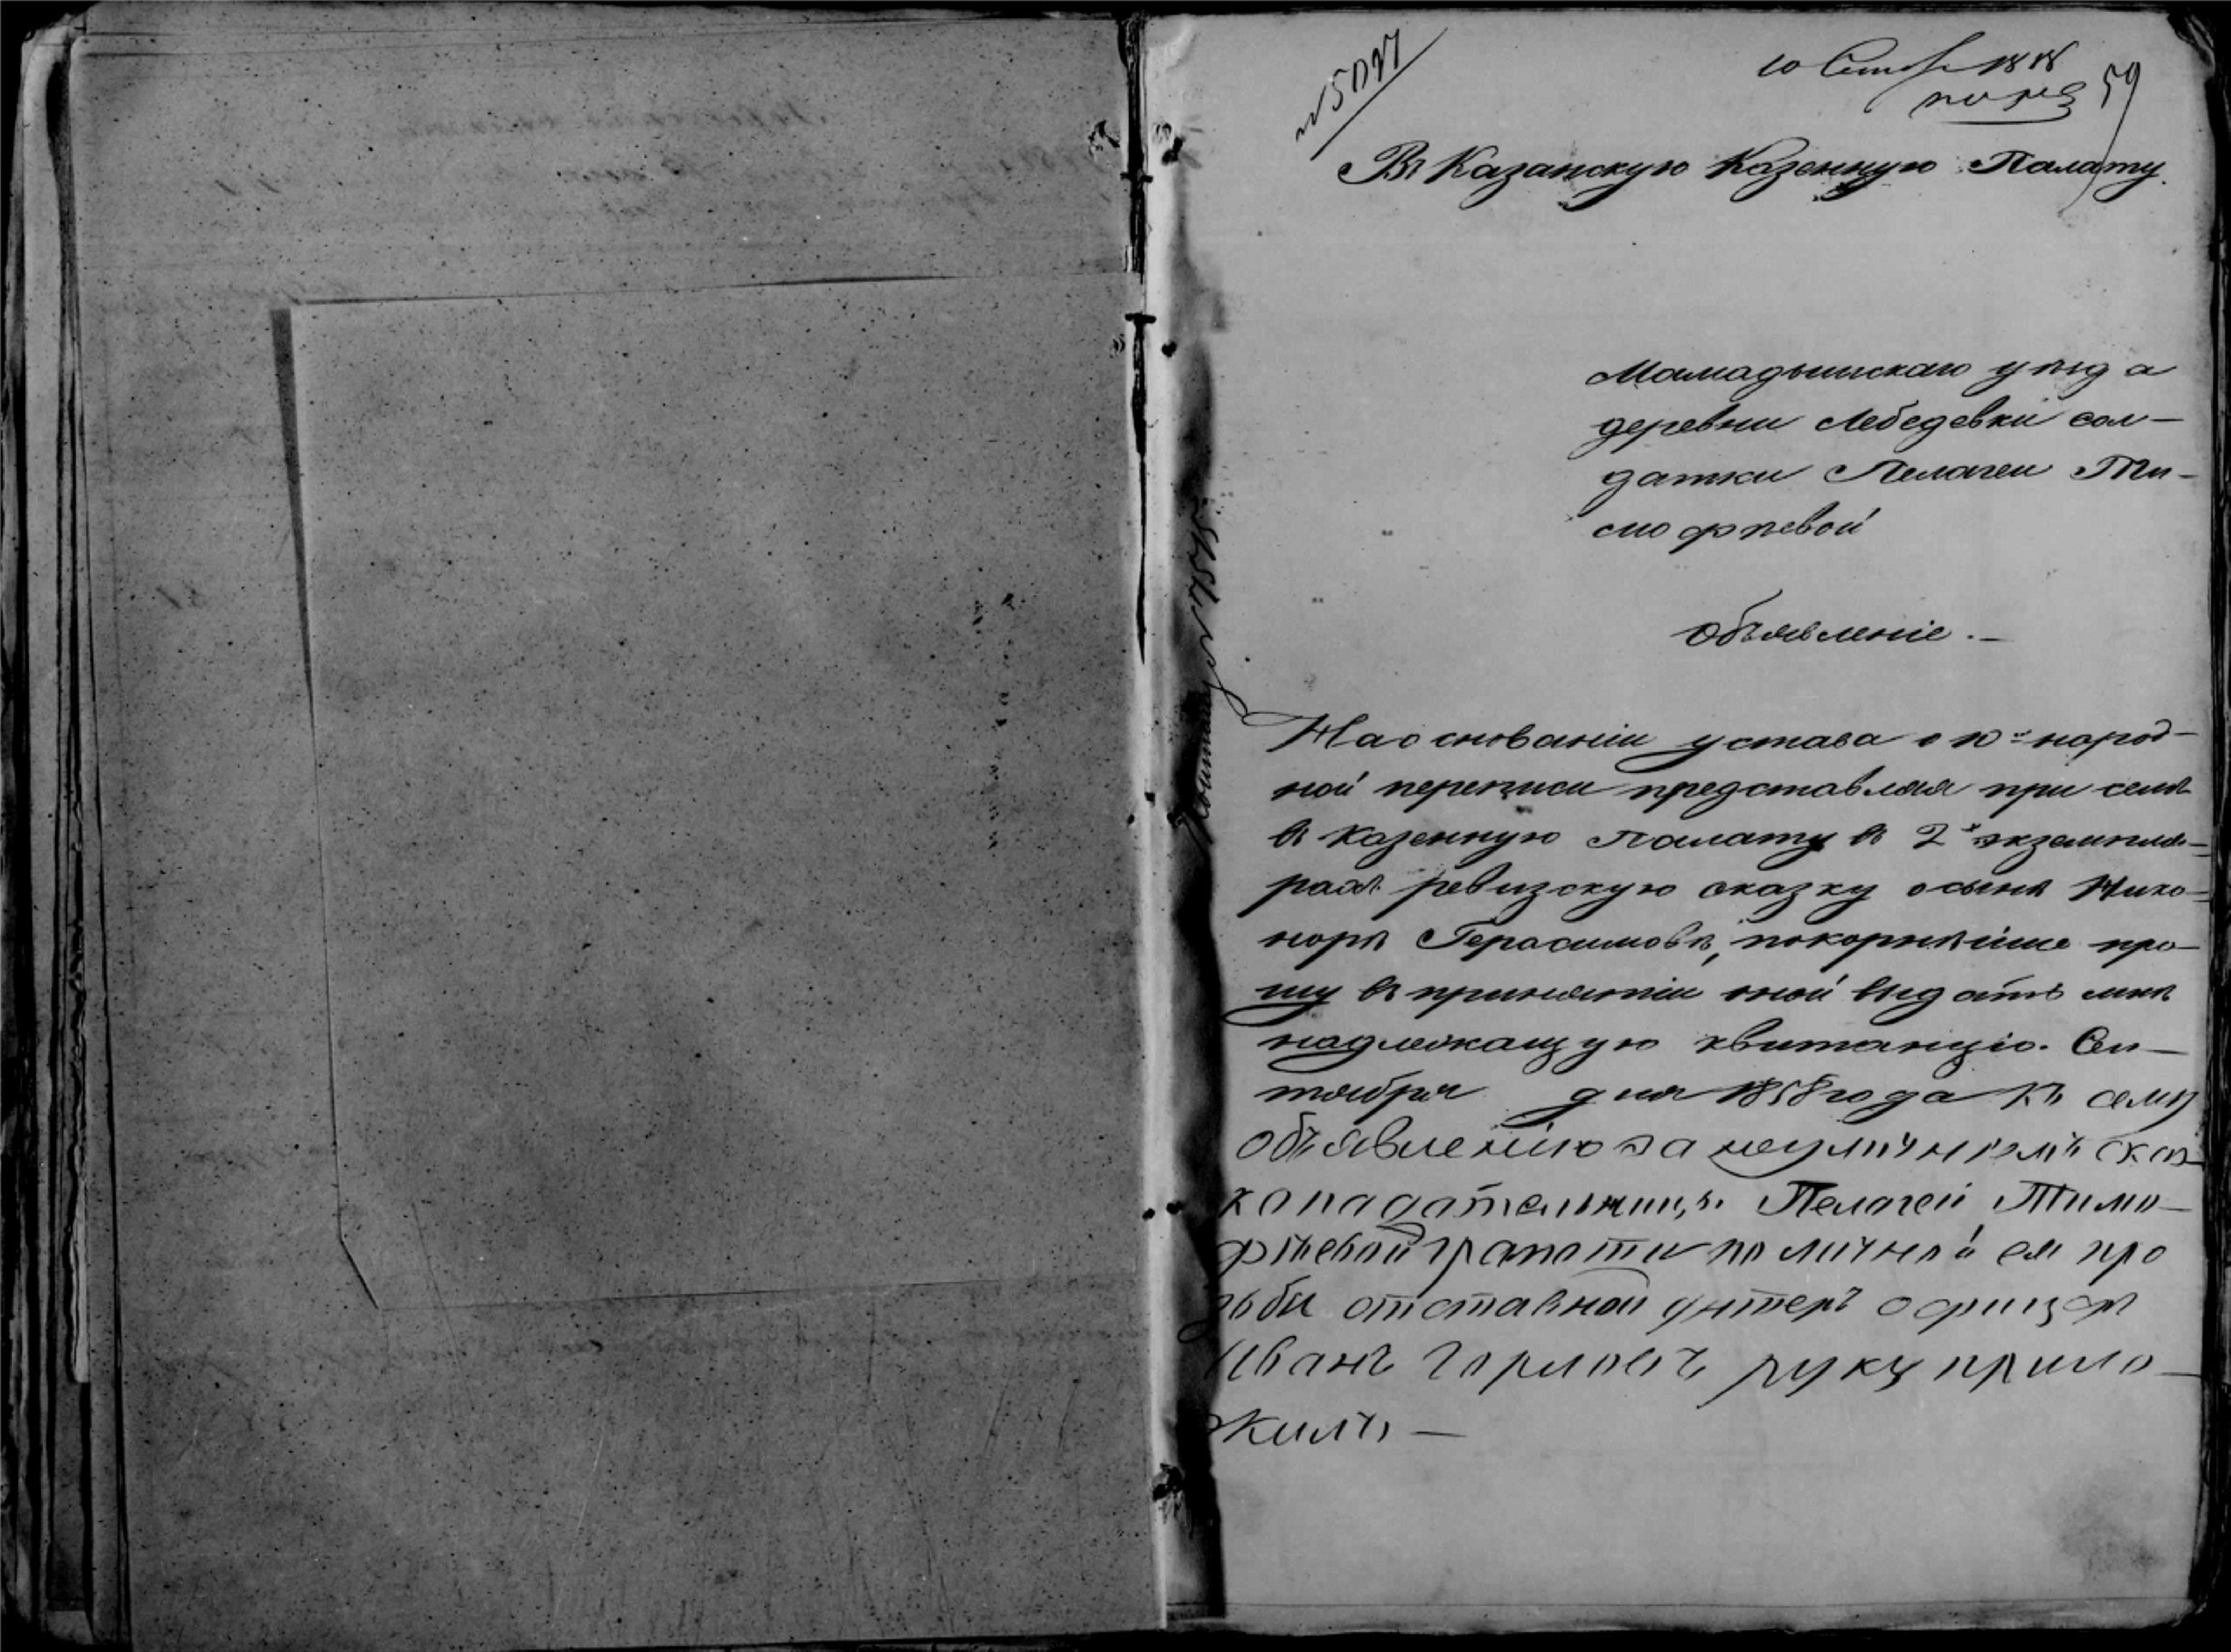 59
Въ Казанскую Казенную Палату.
Мамадышскаго уѣзда
деревни Лебедевки сол-
датки Пелагеи Ти-
мофѣевой
Объявленіе.-
На основаніи устава о 10й народ-
ной переписи представляя при семъ
въ Казенную Палату въ 2х экземпля-
рахъ ревизскую сказку о сынѣ Нико-
норѣ Герасимовѣ, покорнѣйше про-
шу въ принятіи оной выдать мнѣ
надлежащую квитанцію. Сен-
тября дня 1858 года Къ сему
объявленію за неумѣніемъ сказ-
коподательницы Пелагеи Тимо-
фѣевой грамоти по личной ея про
зьби отставной унтеръ офицеръ
Иванъ Горловъ руку прило-
жилъ -